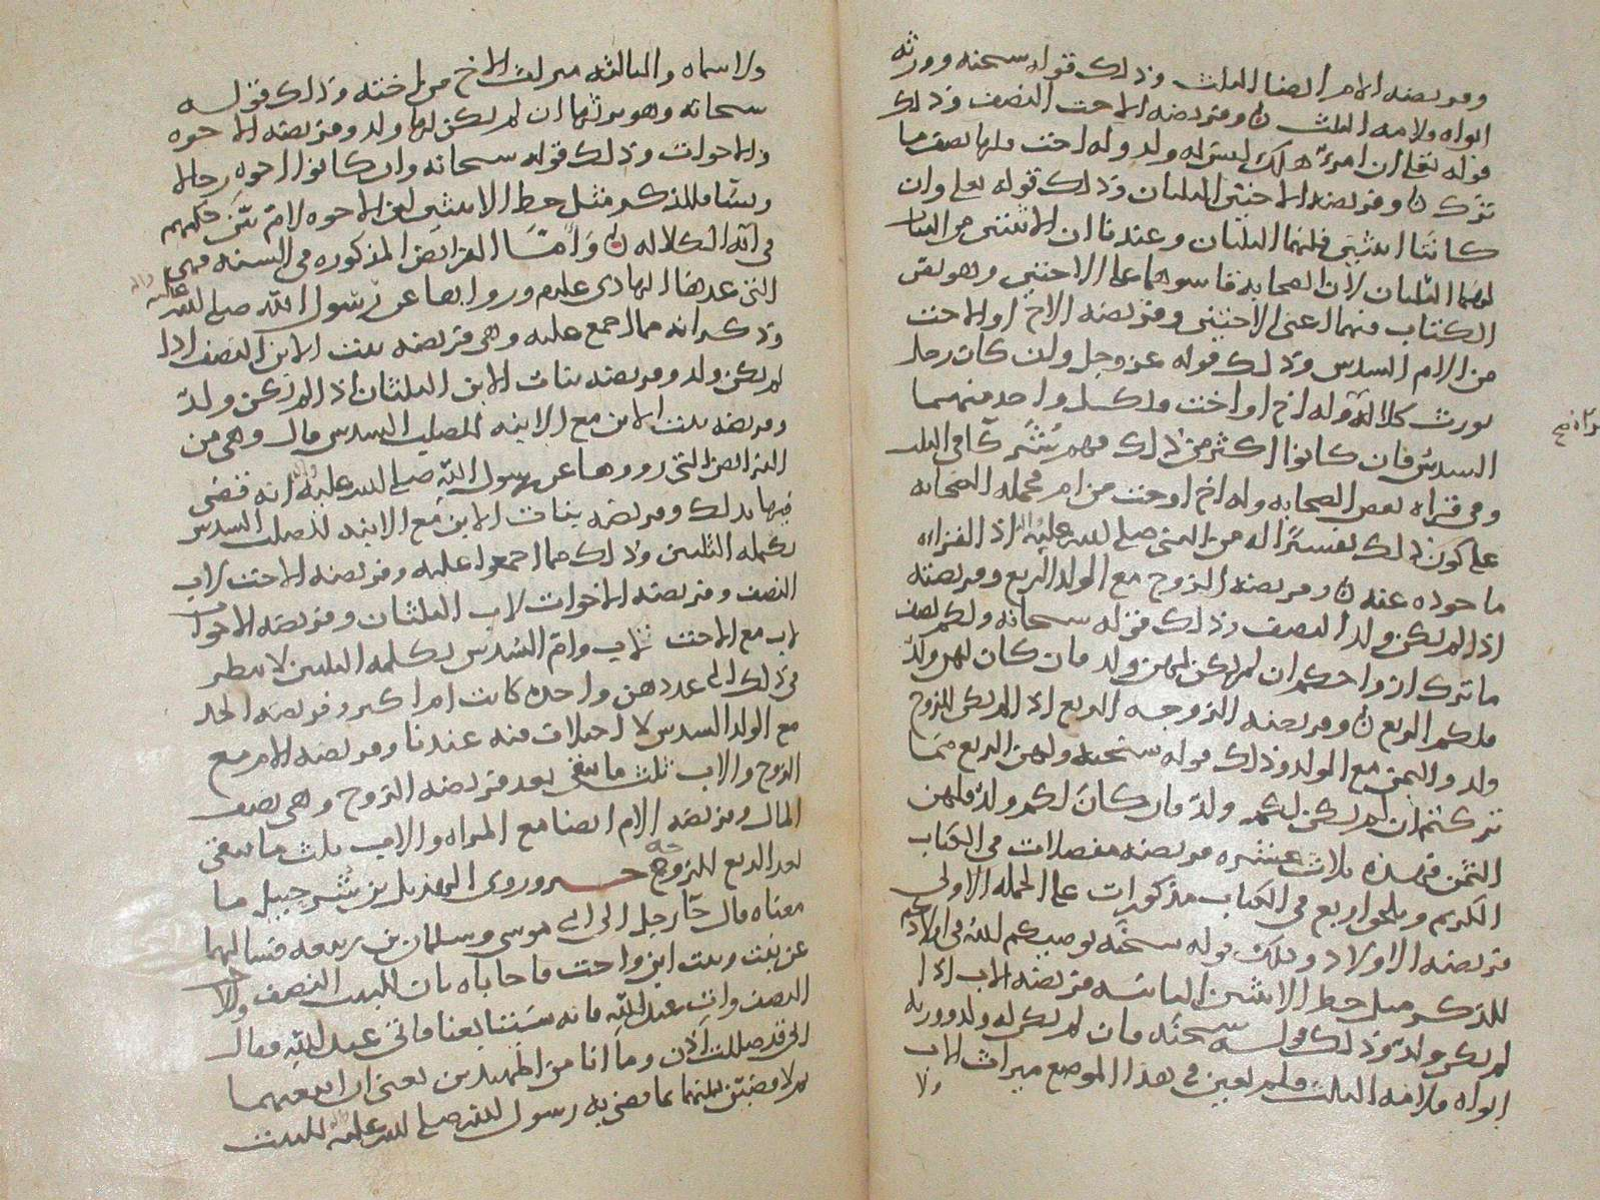 وفريضه الام ايضا الثلث وذلك قوله سبحنه وورثه
ابواه ولامه الثلث ن وفريضه الاخت النصف وذلك
قوله تعلى ان امرؤ هلك ليس له ولد وله اخت فلها نصف ما
ترك ن وفريضه الاختين الثلثان وذلك قوله تعلى وان
كانتا اثنتين فلهما الثلثان وعندنا ان الاثنتين من البنات
لهما الثلثان لان الصحابه قاسوهما على الاختين وهو نص
الكتاب فيهما اعنى الاختين وفريضه الاخ او الاخت
من الام السدس وذلك قوله عز وجل وان كان رجل
يورث كلاله وله اخ او اخت ولكل واحد منهما
السدس فان كانوا اكثر من ذلك فهم شركآ فى الثلث
وفى قراه بعض الصحابه وله اخ او اخت من ام فحمله الصحابه
على كون ذلك تفسيرا له من النبى صلى الله عليه اذ القراه
ماخوذه عنه ن وفريضه الزوج مع الولد الربع وفريضته
اذا لم يكن ولد النصف وذلك قوله سبحانه ولكم نصف
ما ترك ازواجكم ان لم يكن لهن ولد فان كان لهن ولد
فلكم الربع ن وفريضه الزوجه الربع اذا لم يكن للزوج
ولد والثمن مع الولد وذلك قوله سبحنه ولهن الربع مما
تركتم ان لم يكن لكم ولد فان كان لكم ولد فلهن
الثمن فهذه ثلاث عشره فريضه مفصلات فى الكتاب
الكريم وبلحو اربع فى الكتاب مذكورات على الجمله الاولى
فريضه الاولاد وتلك قوله سبحنه يوصيكم الله فى اولادكم
للذكر مثل حظ الانثيين الثانيه فريضه الاب اذا
لم يكن ولد وذلك قوله سبحنه فان لم يكن له ولد وورثه
ابواه فلامه الثلث ولم يعين فى هذا الموضع ميراث الاب
ولا
ولا سماه والثالثه ميراث الاخ من اخته وذلك قوله
سبحانه وهو يرثها ان لم يكن لها ولد وفريضه الاخوه
والاخوات وذلك قوله سبحانه وان كانوا اخوه رجالا
ونسآ فللذكر مثل حظ الانثيين الاخوه لام بين حكمهم
فى آيه الكلاله ن وامّا الفرايض المذكوره فى السنه فهى
التى عدها الهادى عليه ورواها عن رسول الله صلى الله عليه واله
وذكر انه مما اجمع عليه وهى فريضه بنت الابن النصف اذا
لم يكن ولد وفريضه بنات الابن الثلثان اذا لم يكن ولد
وفريضه بنت الابن مع الابنه للصلب السدس قال وهى من
الفرايض التى رووها عن رسول الله صلى الله عليه انه قضى
فيها بذلك وفريضه بنات الابن مع الابنه للصلب السدس
تكمله الثلثين وذلك مما اجمعوا عليه وفريضه الاخت لاب
النصف وفريضه الاخوات لاب الثلثان وفريضه الاخوات
لاب مع الاخت لاب وام السدس تكمله الثلثين لا ينظر
فى ذلك الى عددهن واحده كانت ام اكثر وفريضه الجد
مع الولد السدس لا اختلاف فيه عندنا وفريضه الام مع
الزوج والاب ثلث ما يبقى بعد فريضه الزوج وهى نصف
المال وفريضه الام ايضا مع المراه والاب ثلث ما يبقى
بعد الربع للزوجه خبر وروى الهذيل بن شرحبيل ما
معناه قال جآ رجل الى ابى موسى وسلمان بن ربيعه فسالهما
عن بنت وبنت ابن واخت فاجاباه بان للبنت النصف وللاخت
النصف وات عبد الله فانه سيتابعنا فاتى عبد الله فقال
انى قد ضللت اذن وما انا من المهتدين يعنى ان اتبعهما
لم لاقضين بينهما بما قضى به رسول الله صلى الله عليه للبنت